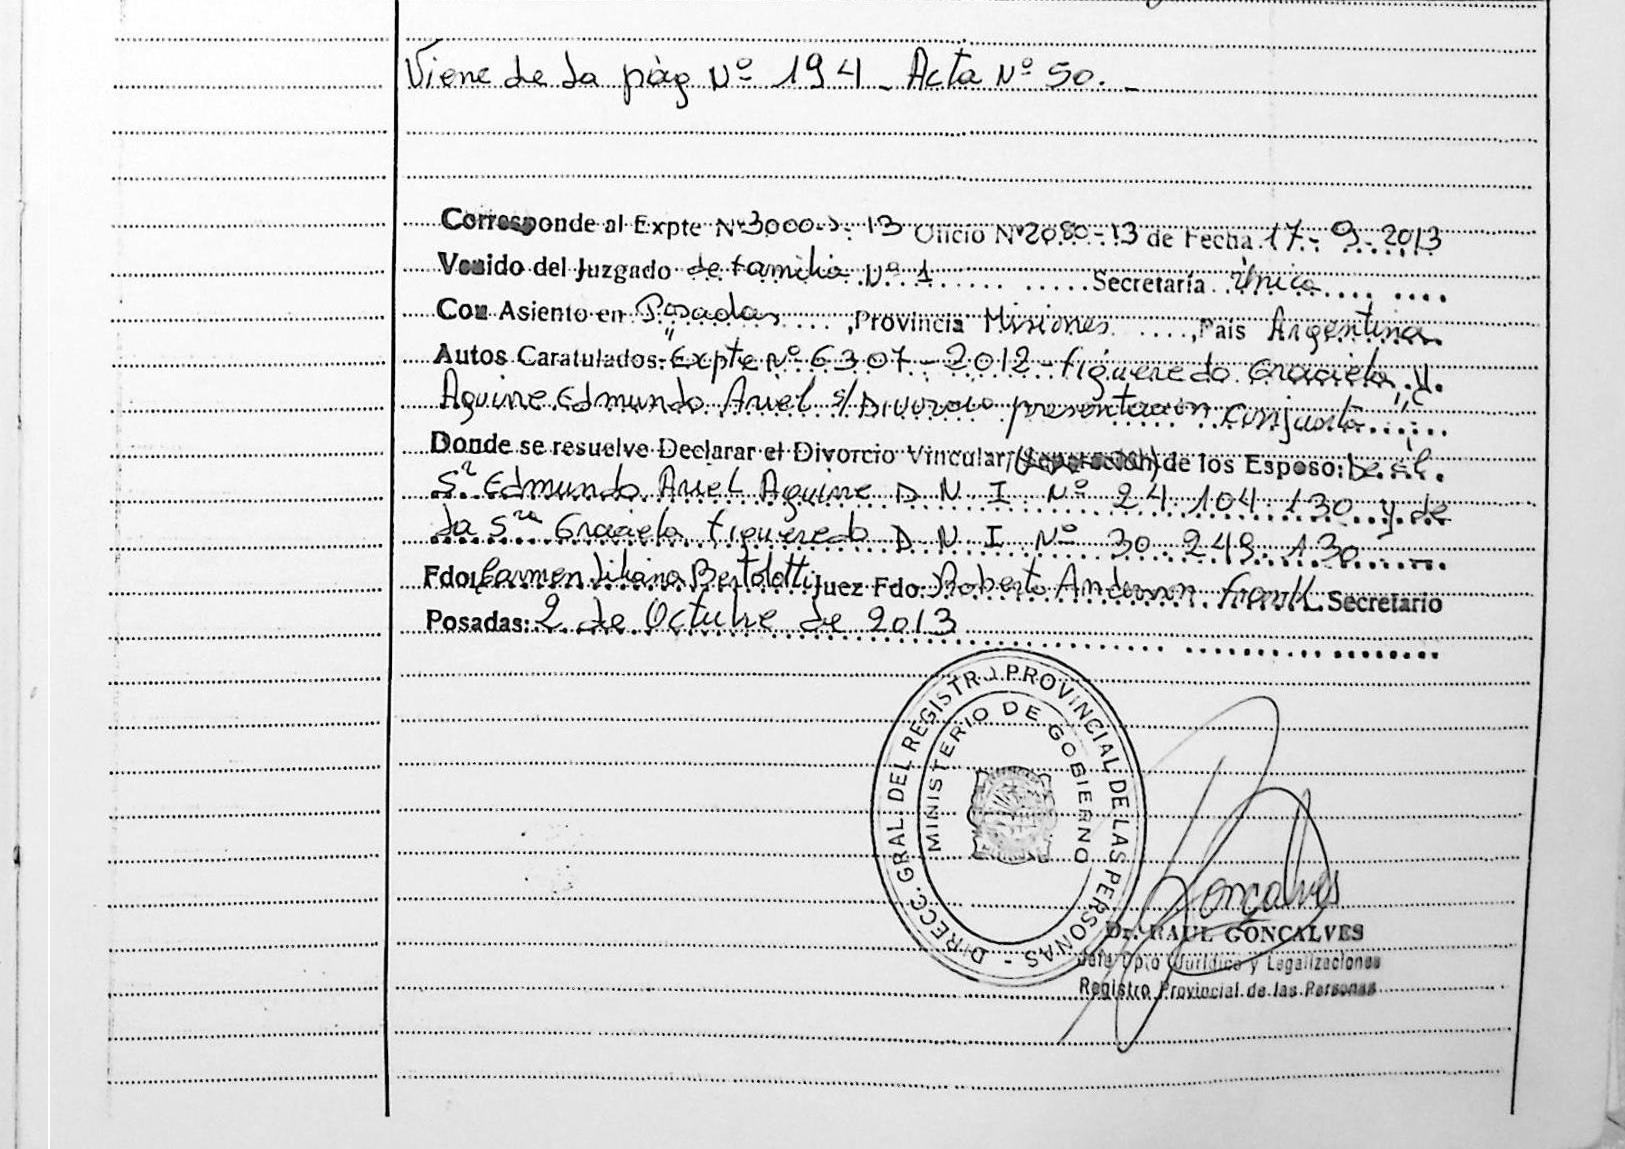 Viene de la pág Nº 194 - Acta Nº 50. -
Corresponde al Expte Nº 3000-J- 13 Oficio Nº 2080-13 de Fecha 17-9-2013
Venido del Juzgado de familia Nº 1 Secretaría única
Con Asiento en Posadas, Provincia Misiones, País Argentina
Autos Caratulados: "Expte Nº 6307-2012 - Figueredo Graciela y
Aguirre Edmundo Ariel s/ Divorcio presentación conjunta"
Donde se resuelve Declarar el Divorcio Vincular (Separación) de los Esposo: De el
Sr Edmundo Ariel Aguirre D N I Nº 24.104.130 y de
la Sra Graciela Figueredo D N I Nº 30.249.130
Fdo. Carmen Liliana Bertolotti Juez Fdo: Roberto Anderson Secretario
Posadas: 2 de Octubre de 2013
DIRECC. GRAL. DEL REGISTRO PROVINCIAL DE LAS PERSONAS -
MINISTERIO DE GOBIERNO
Goncalves
Dr. RAUL GONCALVES
Jefe Dpto Jurídico y Legalizaciones
Registro Provincial de las Personas